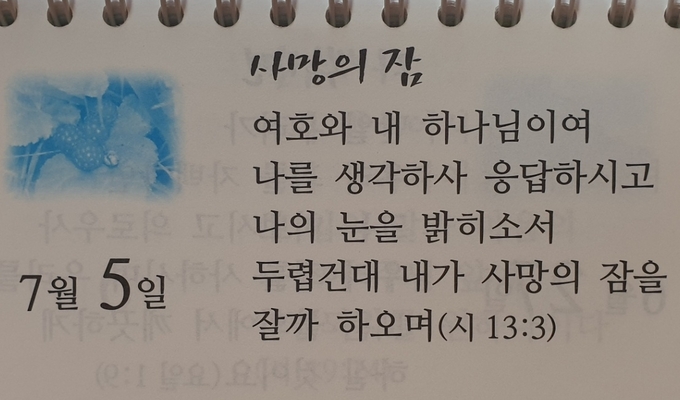 사망의 잠
여호와 내 하나님이여
나를 생각하사 응답하시고
나의 눈을 밝히소서
두렵건대 내가 사망의 잠을
잘까 하오며(시 13:3)
7월 5일